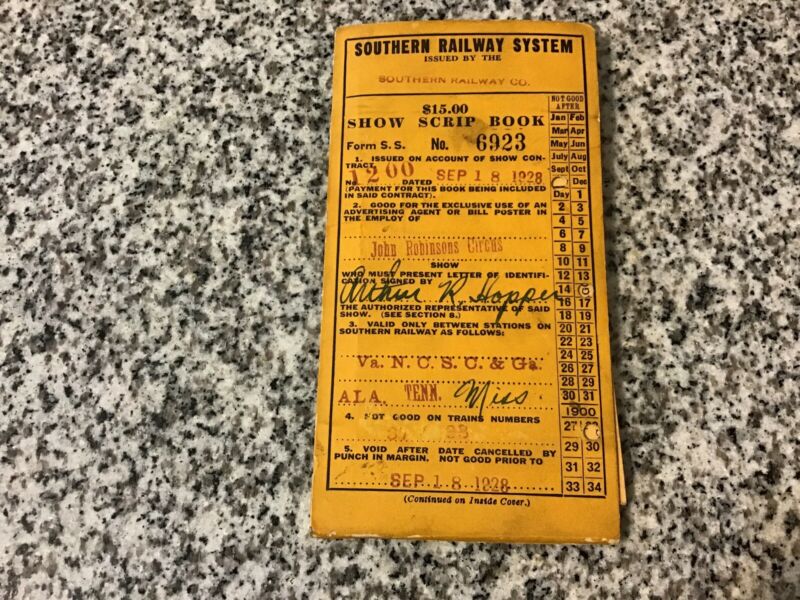 SOUTHERN RAILWAY SYSTEM
ISSUED BY THE
SOUTHERN RAILWAY CO.
$15.00
SHOW SCRIP BOOK
Form S. S. No. 6923
1. ISSUED ON ACCOUNT OF SHOW CON-
TRACT
No. 1200 DATED SEP 18 1928
(PAYMENT FOR THIS BOOK BEING INCLUDED
IN SAID CONTRACT).
2. GOOD FOR THE EXCLUSIVE USE OF AN
ADVERTISING AGENT OR BILL POSTER IN
THE EMPLOY OF
John Robinsons Circus
SHOW
WHO MUST PRESENT LETTER OF IDENTIFI-
CATION SIGNED BY
Arthur R. Hopper
THE AUTHORIZED REPRESENTATIVE OF SAID
SHOW. (SEE SECTION 8.)
3. VALID ONLY BETWEEN STATIONS ON
SOUTHERN RAILWAY AS FOLLOWS:
Va. N. C. S. C. & Ga.
ALA. TENN. Miss
4. NOT GOOD ON TRAINS NUMBERS
5. VOID AFTER DATE CANCELLED BY
PUNCH IN MARGIN. NOT GOOD PRIOR TO
SEP 18 1928
(Continued on Inside Cover.)
NOT GOOD
AFTER
Jan Feb
Mar Apr
May Jun
July Aug
Sept Oct
Dec
Day 1
2 3
4 5
6 7
8 9
10 11
12 13
14
16 17
18 19
20 21
22 23
24 25
26 27
28 29
30 31
1900
27
29 30
31 32
33 34